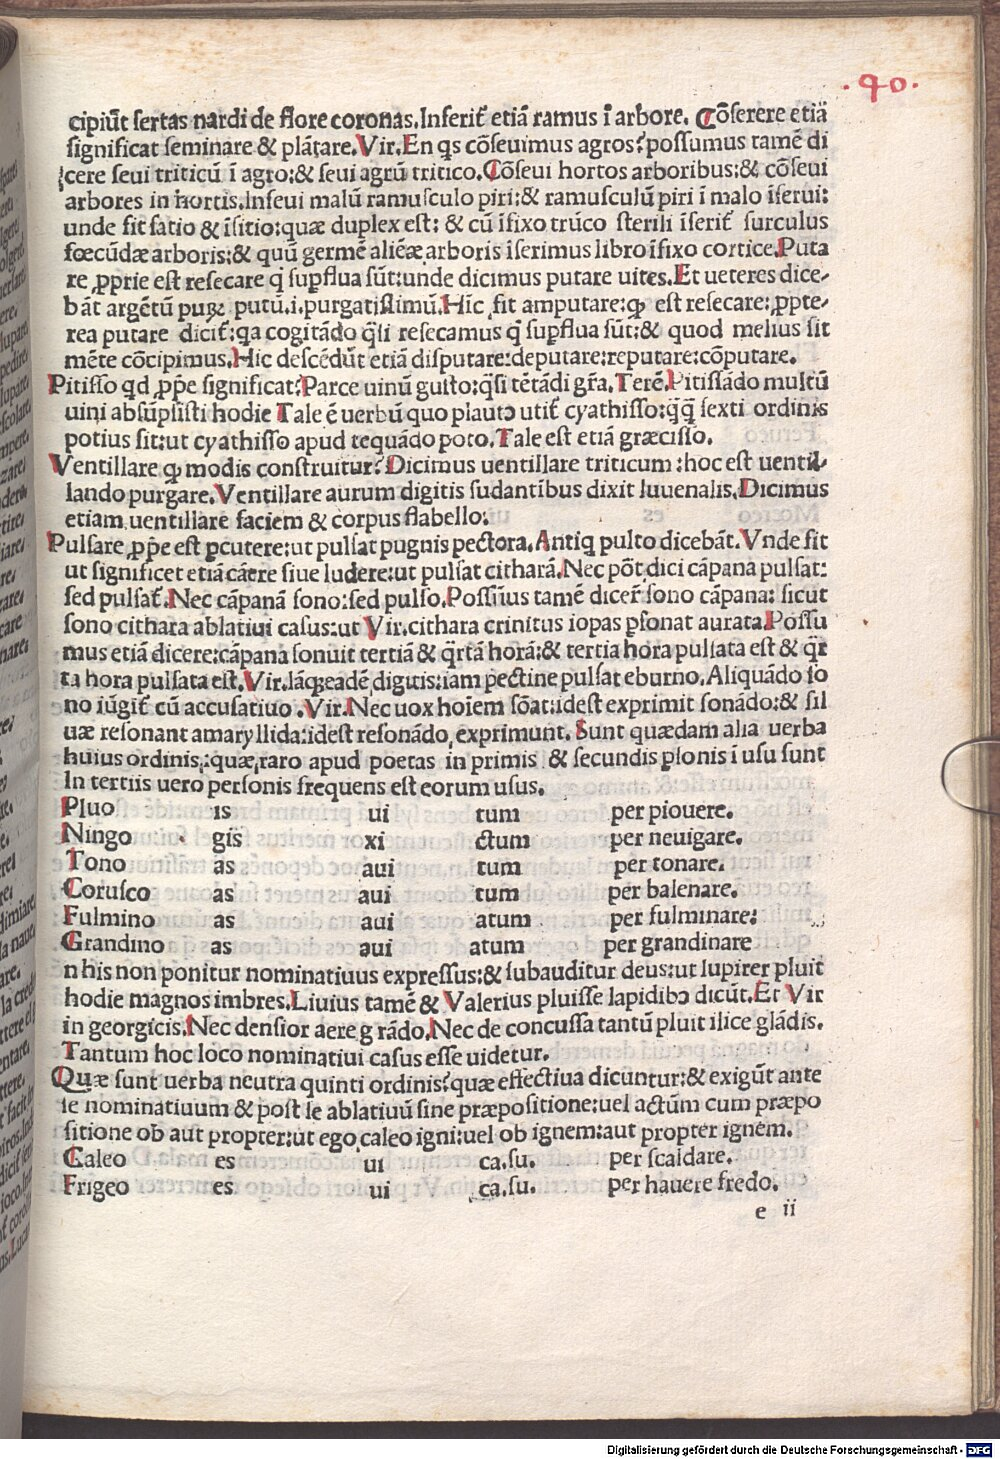 .40.
cipiūt sertas nardi de flore coronas.Inserit̃ etiã ramus ĩ arbore. Cõserere etiã
significat seminare & plãtare.Vir.En qs cõseuimus agros?possumus tamẽ di
cere seui triticũ ĩ agro:& seui agrũ tritico.Cõseui hortos arboribus:& cõseui
arbores in hortis.Inseui malũ ramusculo piri:& ramusculũ piri ĩ malo ĩserui:
unde fit satio & ĩsitio:quæ duplex est: & cũ ĩfixo trũco sterili ĩserit̃ surculus
fœcũdæ arboris:& quũ germẽ aliẽæ arboris ĩserimus libro ĩfixo cortice.Puta
re ꝓprie est resecare q̃ supflua sũt:unde dicimus putare uites.Et ueteres dice-
bãt argẽtũ puꝝ putũ.i.purgatissimũ.Hĩc fit amputare:ꝙ est resecare:ꝓpte-
rea putare dicit̃:qa cogitãdo q̃si resecamus q̃ supflua sũt:& quod melius sit
mẽte cõcipimus.Hic descẽdũt etiã disputare:deputare:reputare:cõputare.
Pitisso qd ꝓpẽ significat?Parce uinũ gusto:q̃si tẽtãdi gr̃a.Terẽ.Pitissãdo multũ
uini absũpsisti hodie Tale ẽ uerbũ quo plautꝰ utit̃ cyathisso:q̃q̃ sexti ordinis
potius sit:ut cyathisso apud tequãdo poto.Tale est etiã græcisso.
Ventillare ꝙ modis construitur?Dicimus uentillare triticum:hoc est uentil-
lando purgare.Ventillare aurum digitis sudantibus dixit Iuuenalis.Dicimus
etiam uentillare faciem & corpus flabello:
Pulsare ꝓpẽ est ꝑcutere:ut pulsat pugnis pectora.Antiq pulto dicebãt.Vnde fit
ut significet etiã cãere siue ludere:ut pulsat citharã.Nec põt dici cãpana pulsat:
sed pulsat̃.Nec cãpanã sono:sed pulso.Possũus tamẽ dicer̃ sono cãpana: sicut
sono cithara ablatiui casus:ut Vir.cithara crinitus iopas ꝑsonat aurata.Possu
mus etiã dicere:cãpana sonuit tertiã & q̃rtã horã:& tertia hora pulsata est & q̃r
ta hora pulsata est.Vir.Iãqꝫ eadẽ digitis:iam pectine pulsat eburno.Aliquãdo so
no iũgit̃ cũ accusatiuo.Vir.Nec uox hoĩem sõat:idest exprimit sonãdo:& sil
uæ resonant amaryllida:idest resonãdo exprimunt. Sunt quædam alia uerba
huius ordinis:quæ raro apud poetas in primis & secundis ꝑsonis ĩ usu sunt
In tertiis uero personis frequens est eorum usus.
Pluo is ui tum per piouere.
Ningo gis xi ctum per neuigare.
Tono as aui tum per tonare.
Corusco as aui tum per balenare.
Fulmino as aui atum per fulminare:
Grandino as aui atum per grandinare
n his non ponitur nominatiuus expressus:& subauditur deus:ut Iupirer pluit
hodie magnos imbres.Liuius tamẽ & Valerius pluisse lapidibꝰ dicũt.Et Vir
in georgicis.Nec densior aere grãdo.Nec de concussa tantũ pluit ilice glãdis.
Tantum hoc loco nominatiui casus esse uidetur.
Quæ sunt uerba neutra quinti ordinis?quæ effectiua dicuntur:& exigũt ante
se nominatiuum & post se ablatiuũ sine præpositione:uel actũm cum præpo
sitione ob aut propter:ut ego caleo igni:uel ob ignem:aut propter ignem.
Caleo es ui ca.su. per scaldare.
Frigeo es ui ca.su. per hauere fredo.
e ii
Digitalisierung gefördert durch die Deutsche Forschungsgemeinschaft - DFG